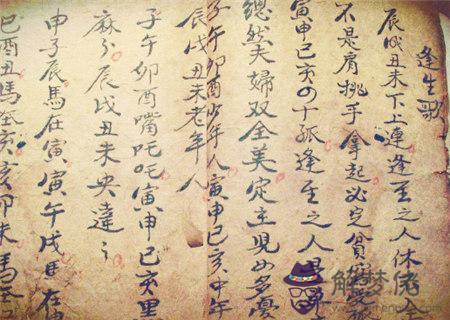 逢生歌
辰戌丑未下上連逢至之人休
不是肩挑手拿起必定貧
寅申巳亥四十孤逢至之人
總然夫婦双全美定主児女多憂
子午卯酉少年人寅申巳亥中年
辰戌丑未老年人
子午卯酉嘴吒吒寅申巳亥黑
麻辰戌丑未央違
申子辰馬在寅寅午戌馬在
巳酉丑馬在亥亥卯未馬
解梦佬